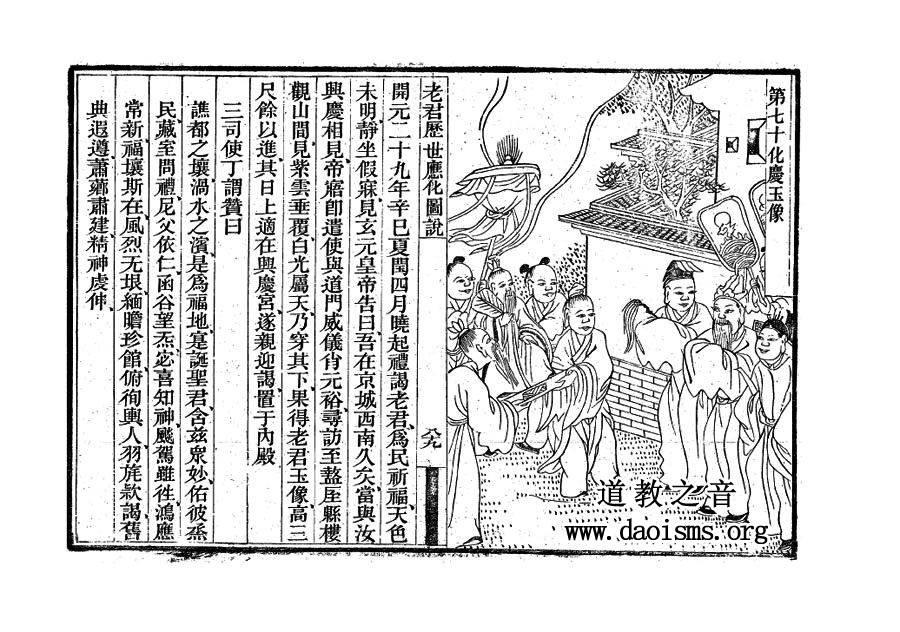 第七十化慶玉像
老君歷世應化圖說
八九
開元二十九年辛巳夏閏四月曉起禮謁老君爲民祈福天色
未明靜坐假寐見玄元皇帝告曰吾在京城西南久矣當與汝
興慶相見帝寤卽遣使與道門威儀肖元裕尋訪至盩厔縣樓
觀山間見紫雲垂覆白光屬天乃穿其下果得老君玉像高三
尺餘以進其日上適在興慶宮遂親迎謁置于內殿
三司使丁謂贊曰
譙都之壤渦水之濱是爲福地寔誕聖君含兹衆妙佑彼烝
民藏室問禮尼父依仁函谷望炁宓喜知神颷駕雖徃鴻應
常新福壤斯在風烈无垠緬瞻珍館俯徇輿人羽旄款謁舊
典遐遵蕭薌肅建精神虔伸
道教之音
www.daoisms.org